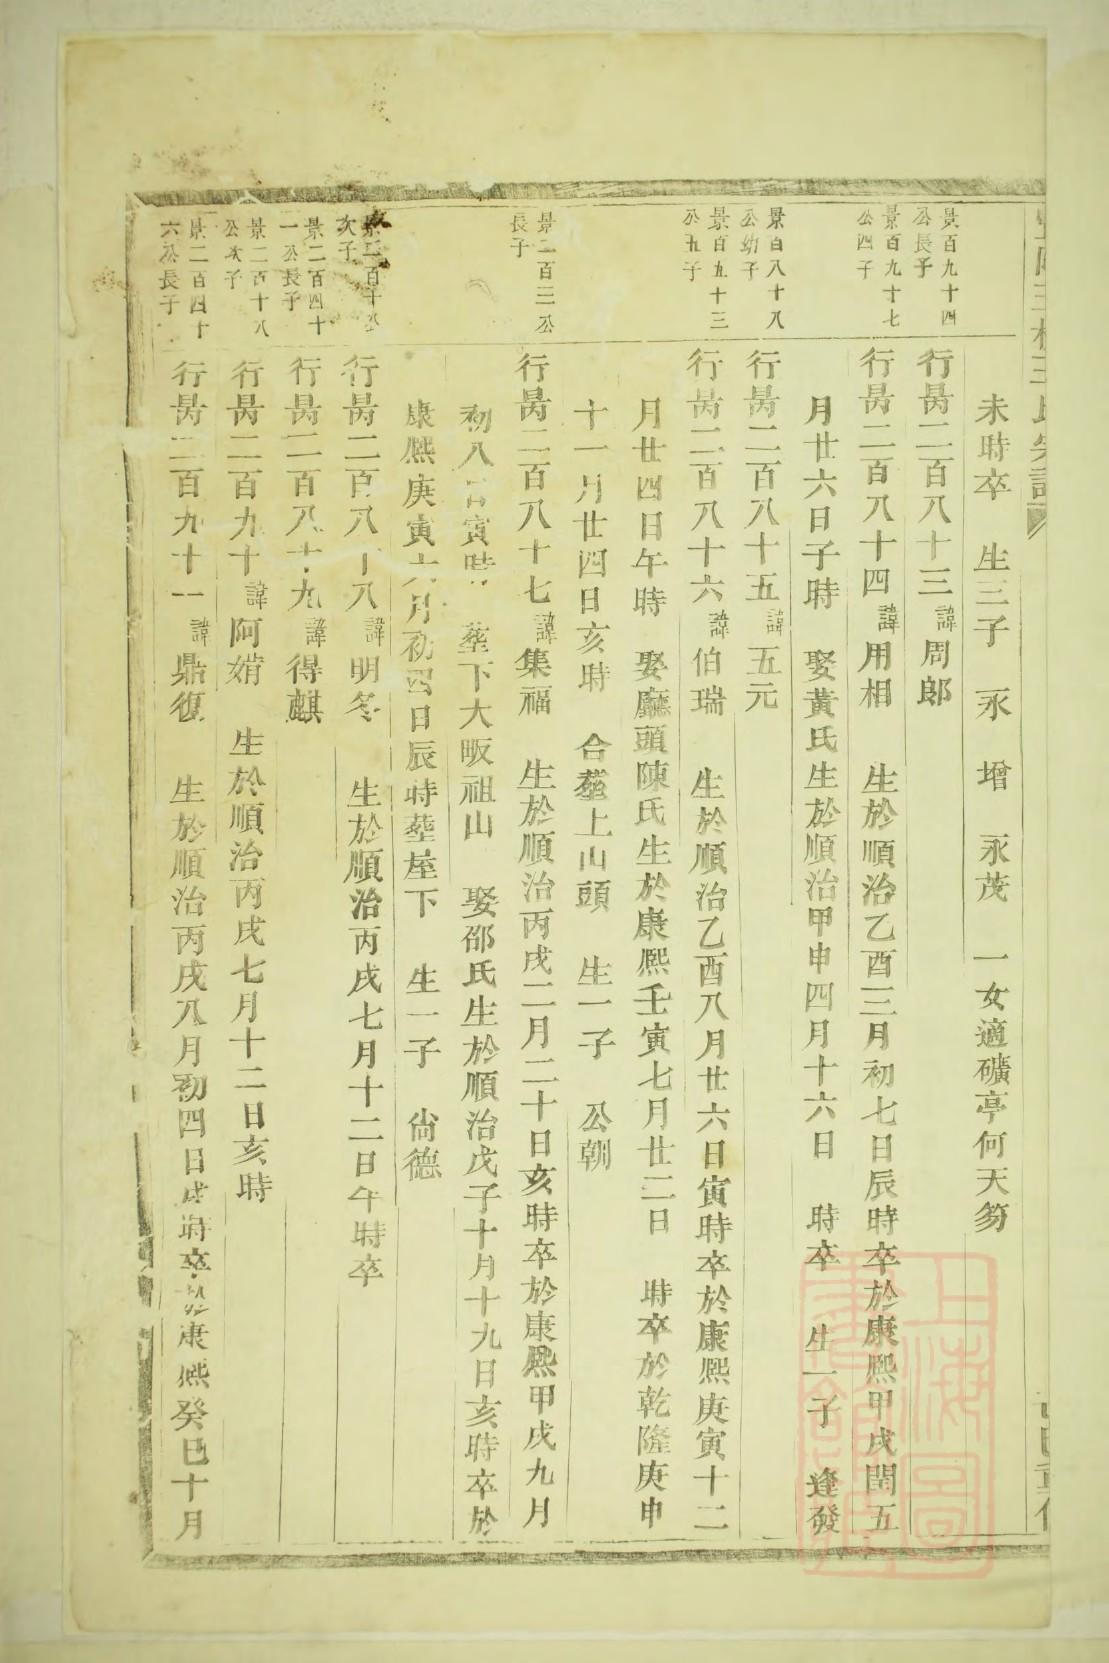 未時卒 生三子 永 增 永茂 一女適礦亭何天笏
景百九十四公長子
行昺二百八十三諱周郎
景百九十七公四子
行昺二百八十四諱用相 生於順治乙酉三月初七日辰時卒於康熙甲戌閏五
月廿六日子時 娶黃氏生於順治甲申四月十六日 時卒 生一子 逢發
景百八十八公幼子
行昺二百八十五諱五元
景百九十三公五子
行昺二百八十六諱伯瑞 生於順治乙酉八月廿六日寅時卒於康熙庚寅十二
月廿四日午時 娶廳頭陳氏生於康熙壬寅七月廿二日 時卒於乾隆庚申
十一月廿四日亥時 合塟上山頭 生一子 公朝
景二百三公長子
行昺二百八十七諱集福 生於順治丙戌二月二十日亥時卒於康熙甲戌九月
初八日寅時 塟下大畈祖山 娶邵氏生於順治戊子十月十九日亥時卒於
康熙庚寅六月初四日辰時塟屋下 生一子 尙德
景二百十公次子
行昺二百八十八諱明冬 生於順治丙戌七月十二日午時卒
景二百四十一公長子
行昺二百八十九諱得麒
景二百十八公次子
行昺二百九十諱阿婧 生於順治丙戌七月十二日亥時
景二百四十六公長子
行昺二百九十一諱鼎復 生於順治丙戌八月初四日戌時卒於康熙癸巳十月
上海圖書館藏